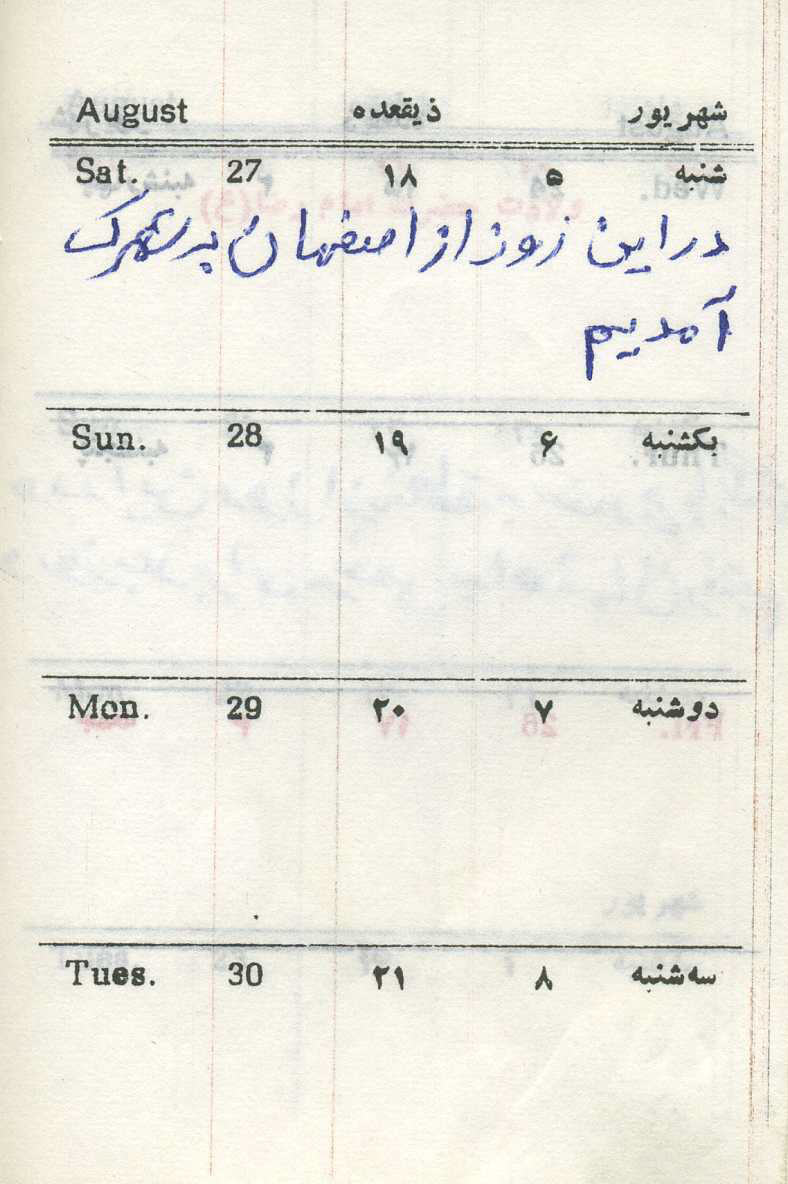 August ذیقعده شهریور
Sat. 27 ۱۸ ۵ شنبه
در این روز از اصفهان به شهرک
آمدیم
Sun. 28 ۱۹ ۶ یکشنبه
Mon. 29 ۲۰ ۷ دوشنبه
Tues. 30 ۲۱ ۸ سه‌شنبه